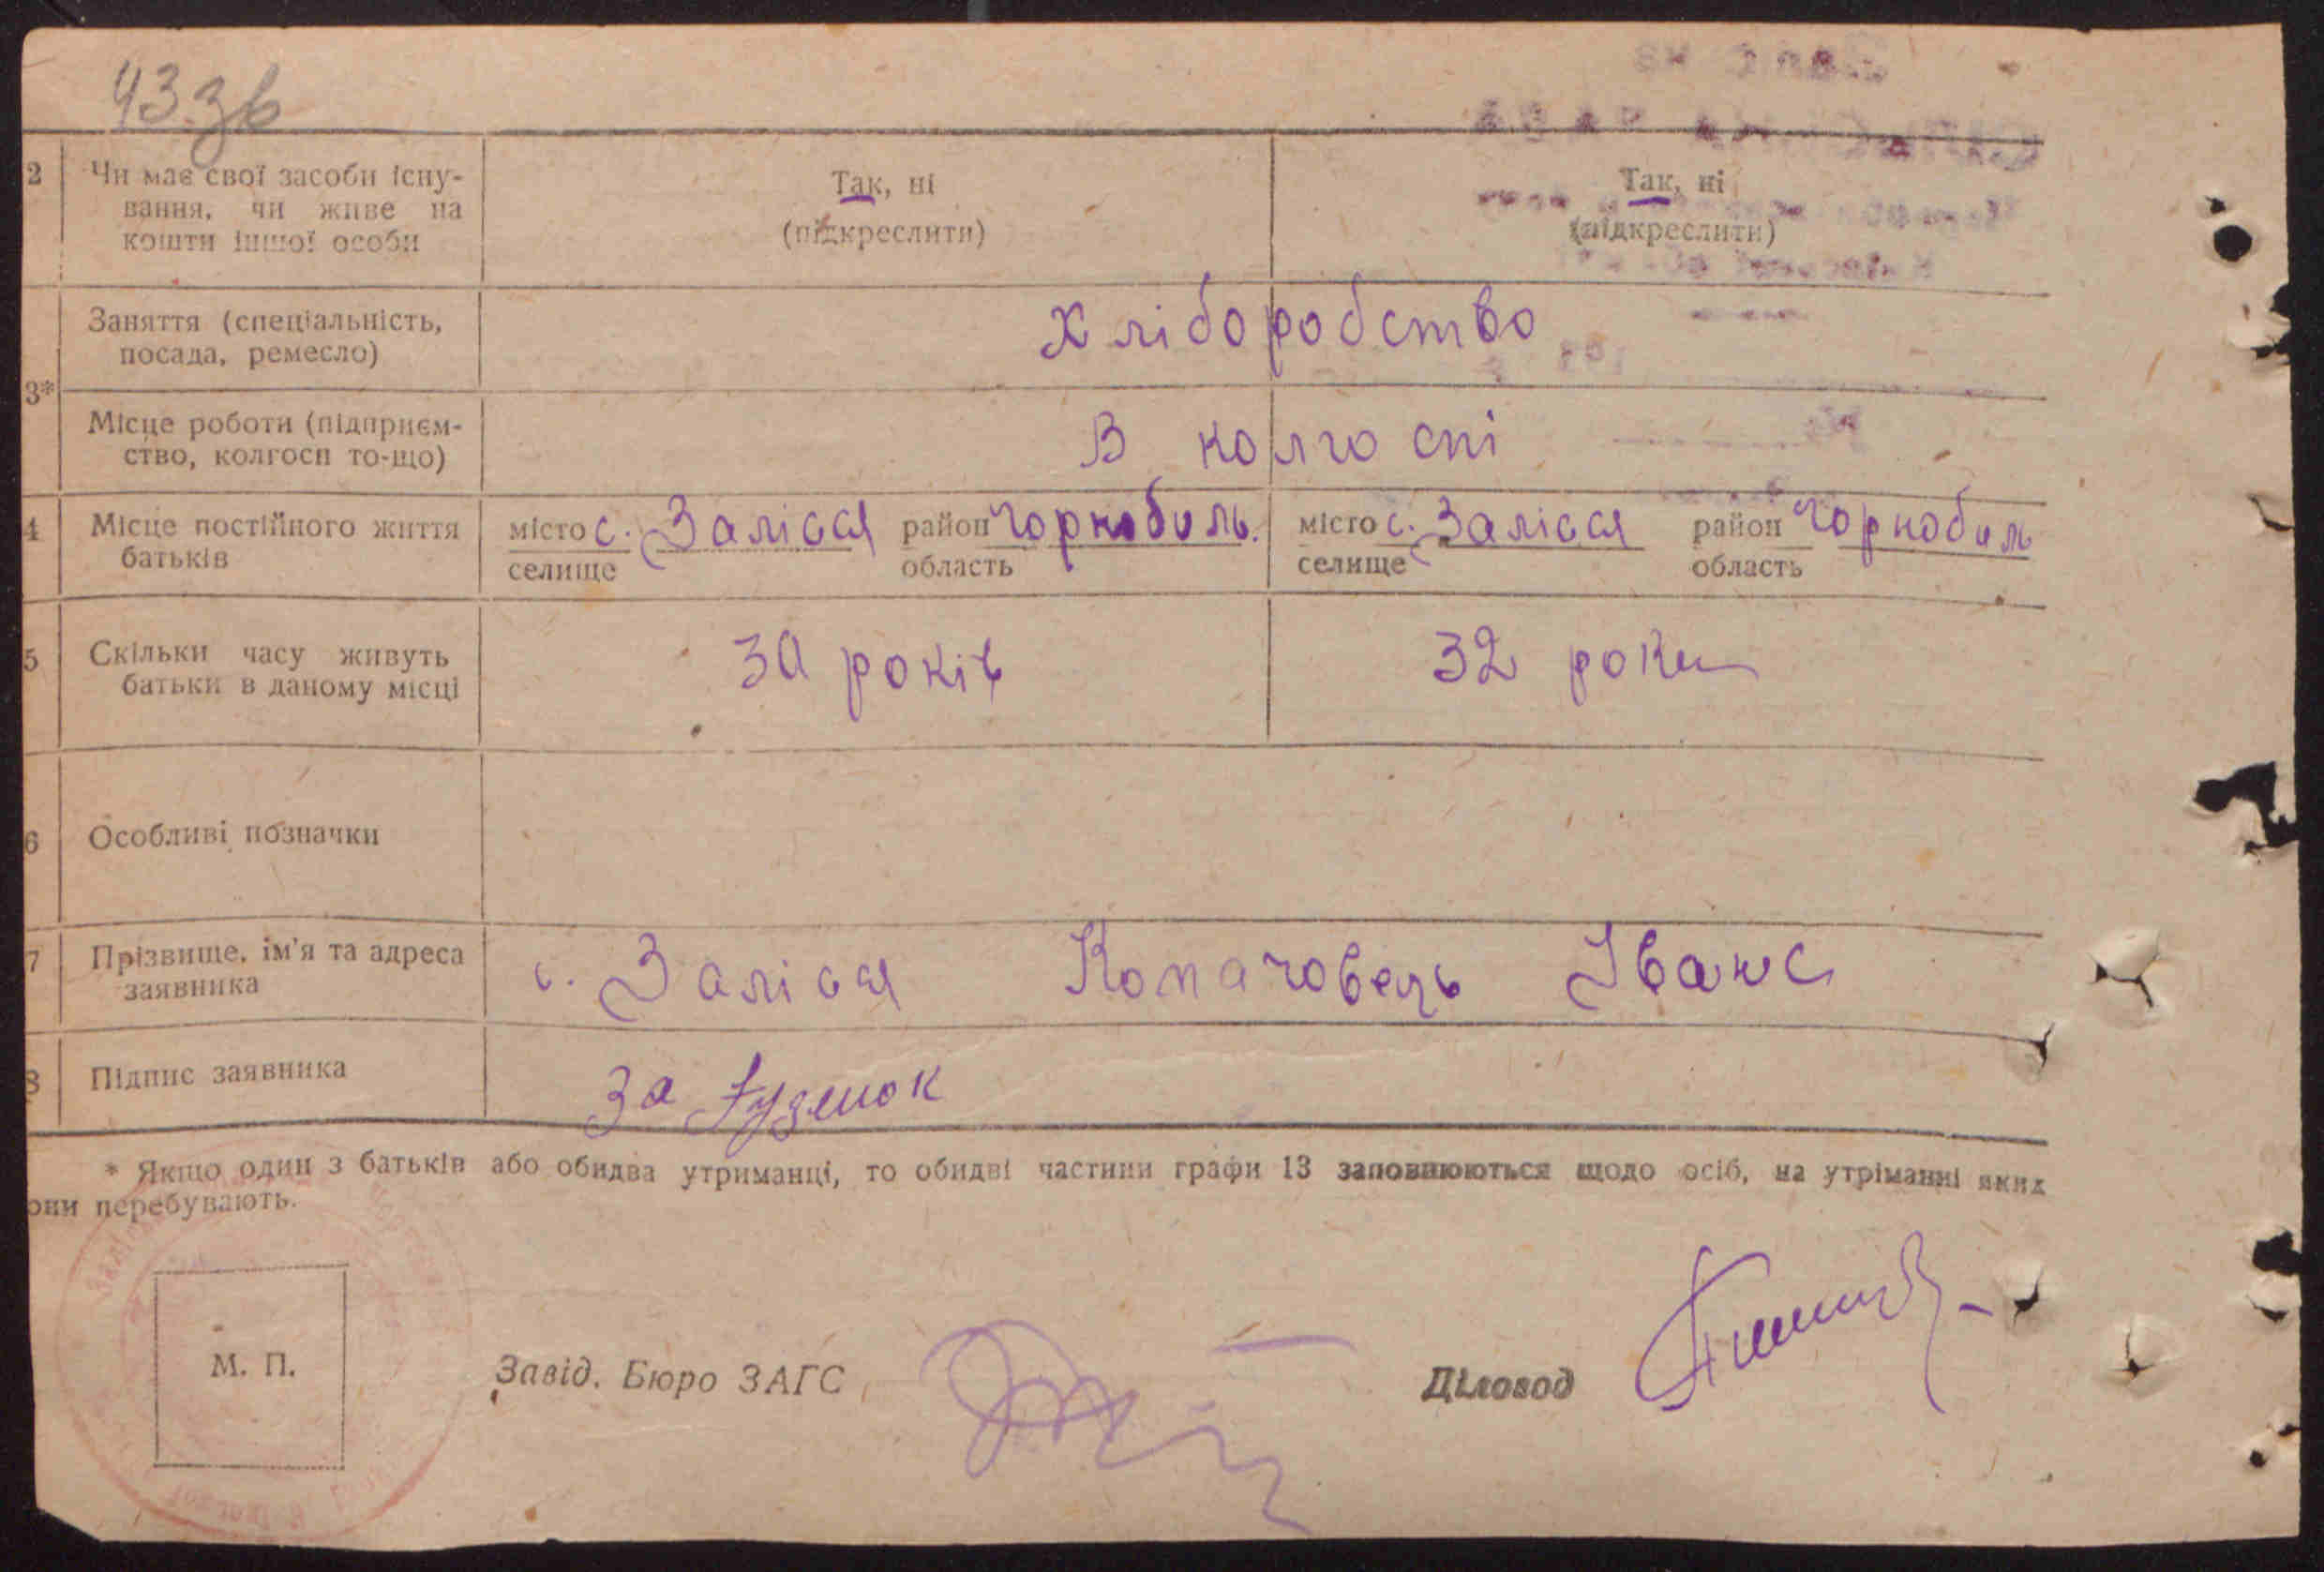 43 зв
2 Чи має свої засоби існу-
вання, чи живе на
кошти іншої особи
Так, ні
(підкреслити)
Так, ні
(підкреслити)
3*
Заняття (спеціальність,
посада, ремесло)
Хліборобство
Місце роботи (підприєм-
ство, колгосп то-що)
В колгоспі
4 Місце постійного життя
батьків
місто с. Залісся район Чорнобиль.
селище область
місто с. Залісся район Чорнобиль
селище область
5 Скільки часу живуть
батьки в даному місці
30 років
32 роки
6 Особливі позначки
7 Прізвище, ім'я та адреса
заявника
с. Залісся Копачовець Іван С
8 Підпис заявника
За
* Якщо один з батьків або обидва утриманці, то обидві частини графи 13 заповнюються щодо осіб, на утріманні яких
они перебувають.
М. П.
Завід. Бюро ЗАГС
Діловод